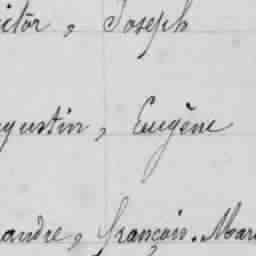 ictor, Joseph
gustin, Eugène
andre, françois. Mar